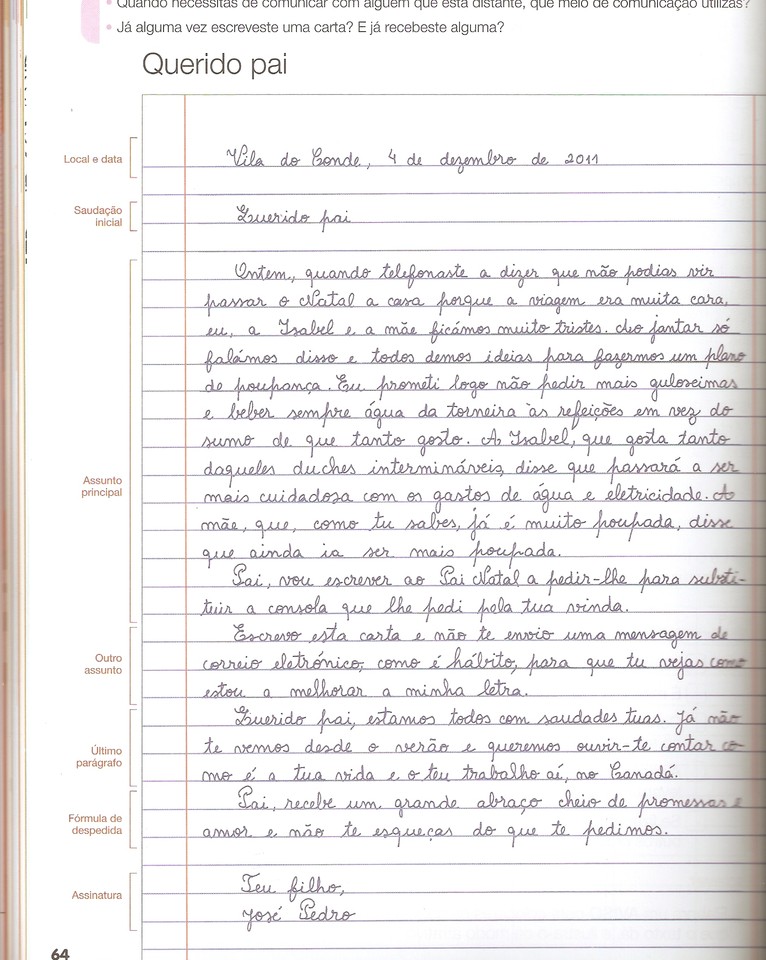 Quando necessitas de comunicar com alguém que está distante, que meio de comunicação utilizas?
Já alguma vez escreveste uma carta? E já recebeste alguma?
Querido pai
Local e data
Vila do Conde, 4 de dezembro de 2011
Saudação
inicial
Querido pai
Ontem, quando telefonaste a dizer que não podias vir
passar o Natal a casa porque a viagem era muita cara,
eu, a Isabel e a mãe ficámos muito tristes. Ao jantar só
falámos disso e todos demos ideias para fazermos um plano
de poupança. Eu prometi logo não pedir mais guloseimas
e beber sempre água da torneira às refeições em vez do
sumo de que tanto gosto. A Isabel, que gosta tanto
daqueles duches intermináveis, disse que passará a ser
mais cuidadosa com os gastos de água e eletricidade. A
mãe, que, como tu sabes, já é muito poupada, disse
que ainda ia ser mais poupada.
Assunto
principal
Pai, vou escrever ao Pai Natal a pedir-lhe para substi-
tuir a consola que lhe pedi pela tua vinda.
Outro
assunto
Escrevo esta carta e não te envio uma mensagem de
correio eletrónico, como é hábito, para que tu vejas como
estou a melhorar a minha letra.
Último
parágrafo
Querido pai, estamos todos com saudades tuas. Já não
te vemos desde o verão e queremos ouvir-te contar co-
mo é a tua vida e o teu trabalho aí, no Canadá.
Fórmula de
despedida
Pai, recebe um grande abraço cheio de promessas e
amor e não te esqueças do que te pedimos.
Assinatura
Teu filho,
José Pedro
64